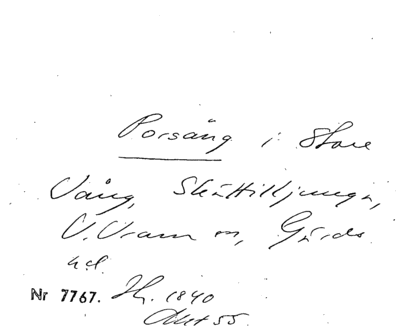 Porsäng i Stora
Vång, Skättilljunga,
V. Vram sn, Gärds
hd.
Nr 7767. Hg. 1840
Akt 55